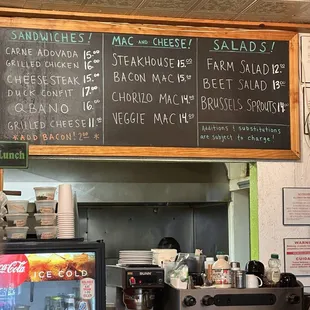 SANDWICHES!
CARNE ADOVADA 15.00
GRILLED CHICKEN 16.00
CHEESESTEAK 15.00
DUCK CONFIT 17.00
QBANO 16.00
GRILLED CHEESE 11.00
*ADD BACON! 2.00
MAC AND CHEESE!
STEAKHOUSE 15.00
BACON MAC 15.00
CHORIZO MAC 14.00
VEGGIE MAC 14.00
SALADS!
FARM SALAD 12.00
BEET SALAD 13.00
BRUSSELS SPROUTS
Additions / substitutions
are subject to charge!
Lunch
Coca-Cola
ICE COLD